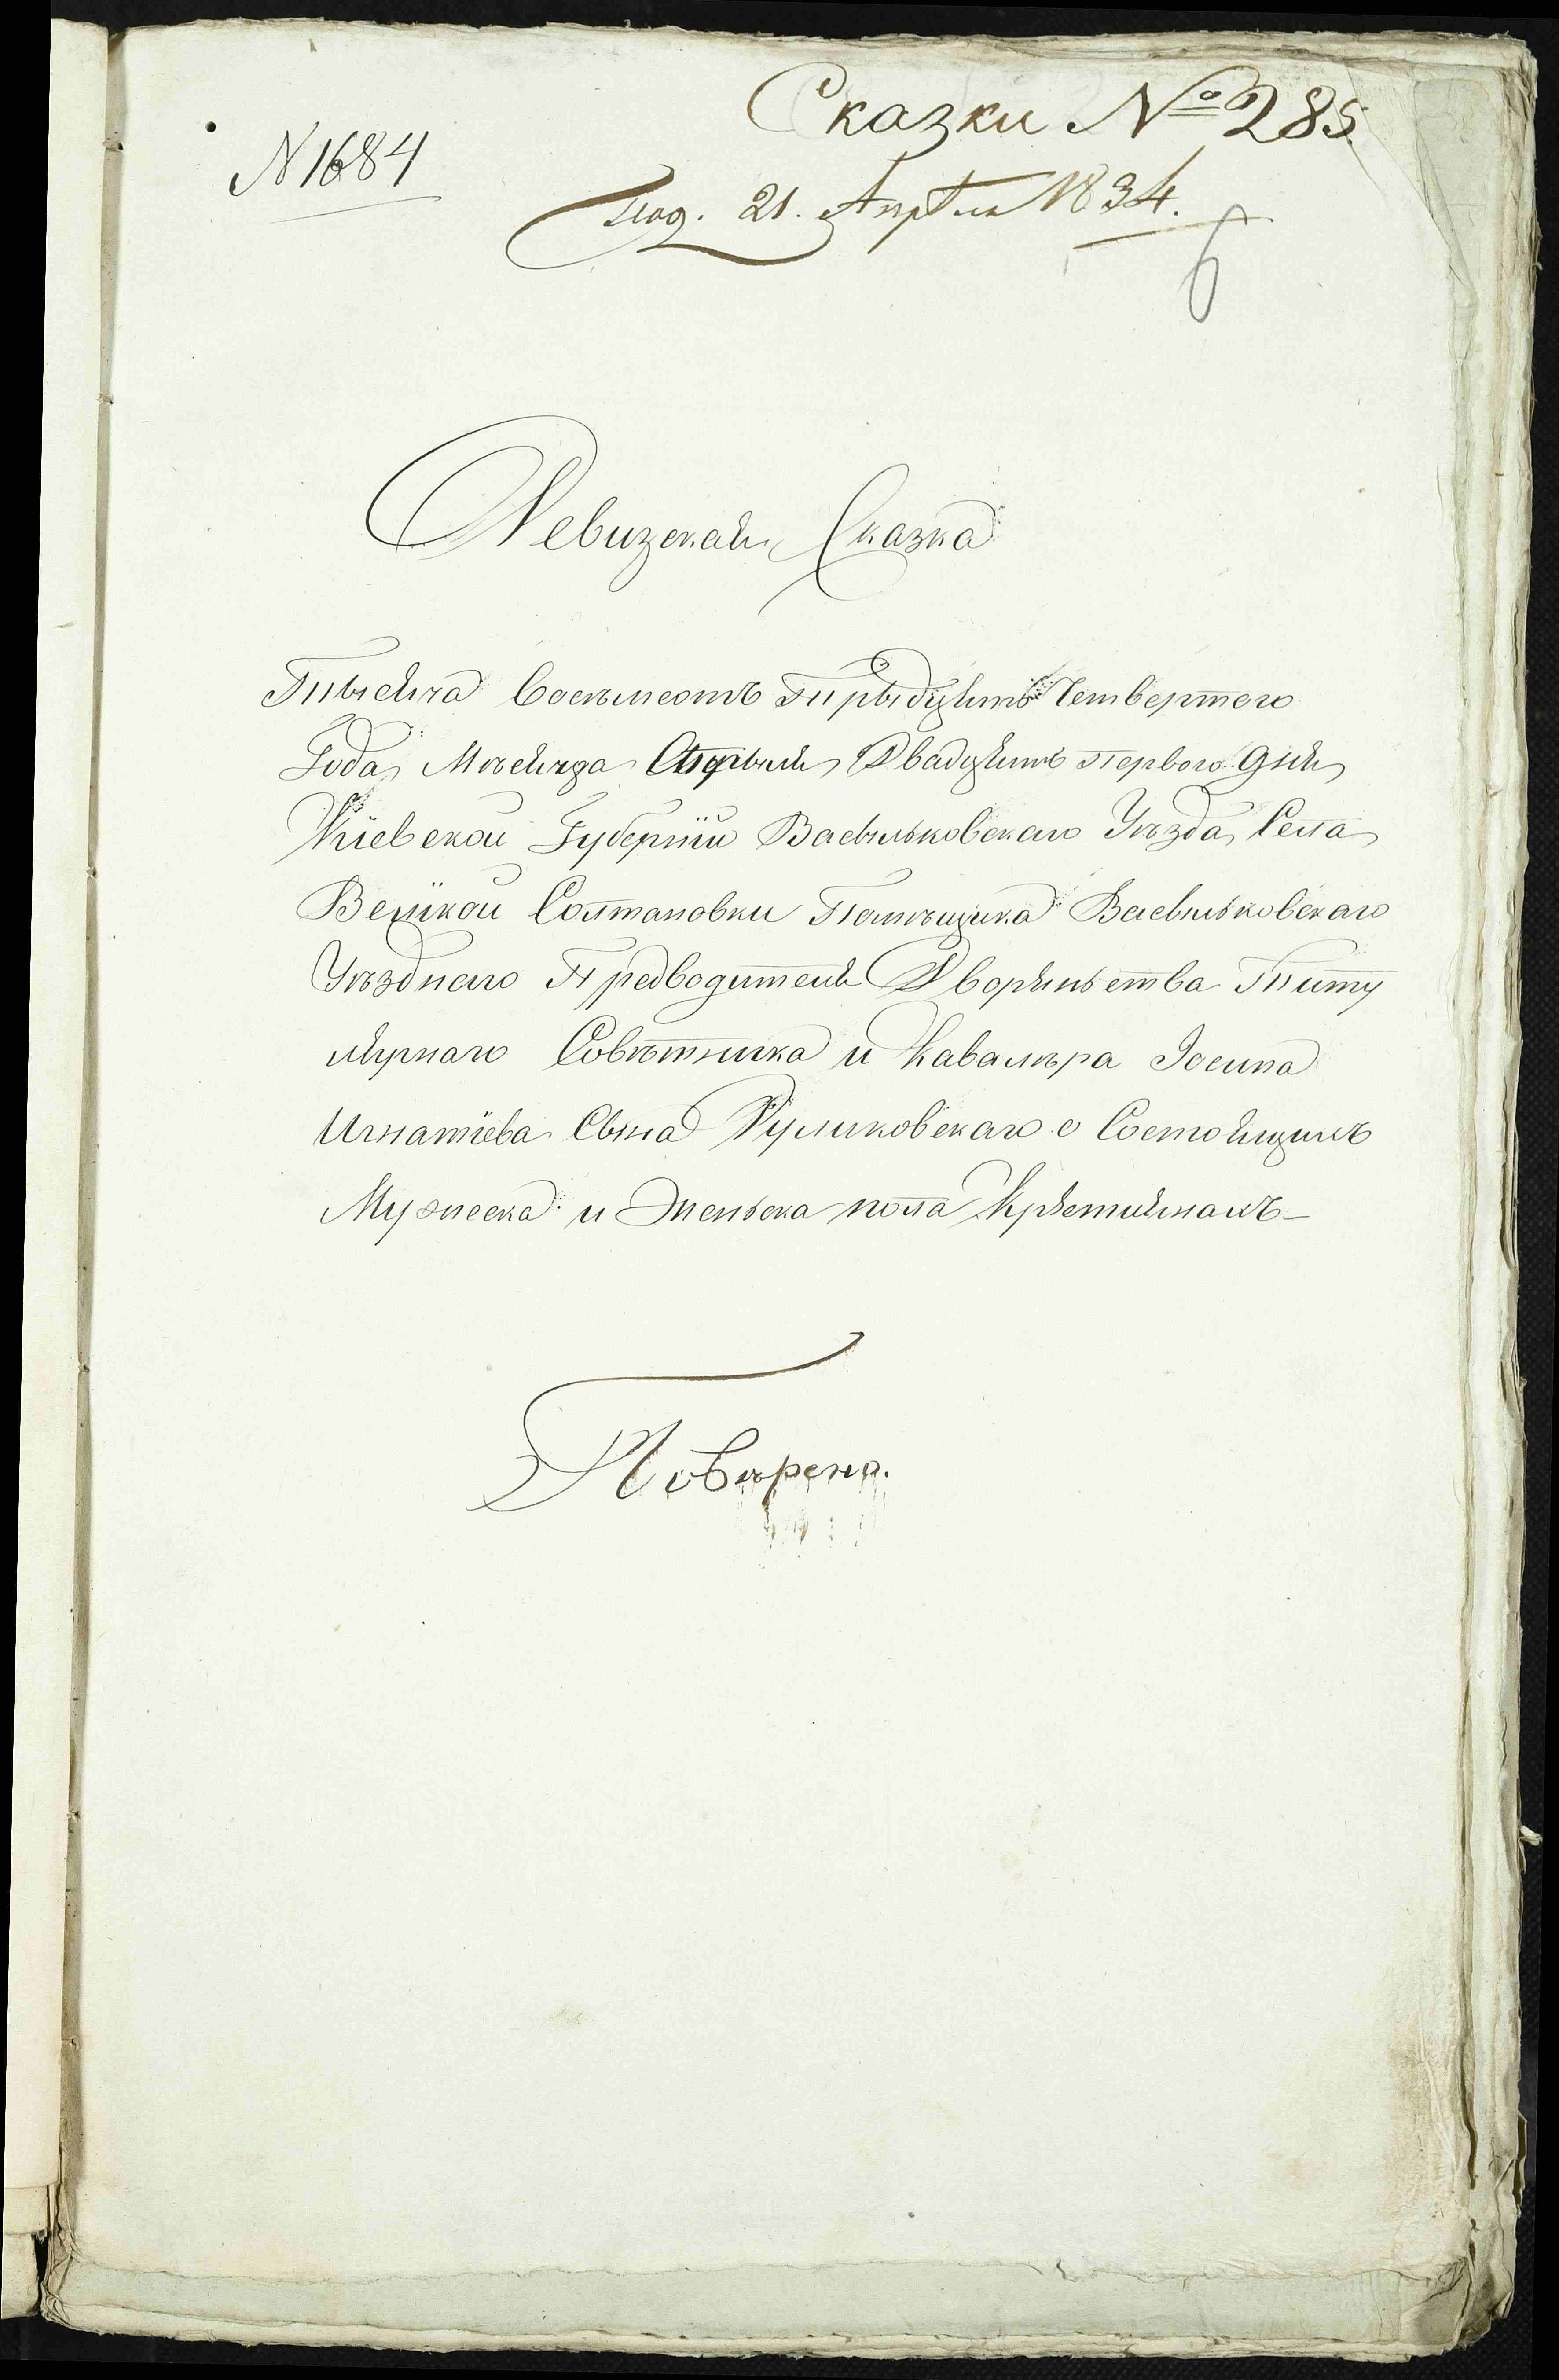 Сказки № 285.
N 1684
Под. 21. Апрѣля 1834.
6
Ревизская Сказка
Тысяча Восемьсотъ Трыдцять Четвертого
Года, Мѣсяца Апрыля Двадцять первого дня
Кіевской Губерніи Васыльковскаго Уѣзда, Села
Великой Солтановки Помѣщика Васыльковскаго
Уѣзднаго Предводителя Дворяньства Титу
лярнаго Совѣтника и Кавалѣра Іосипа
Игнатіева Сына Руликовскаго о Состоящихъ
Мужеска и Женьска пола Крѣстиянахъ—
Повѣрена.